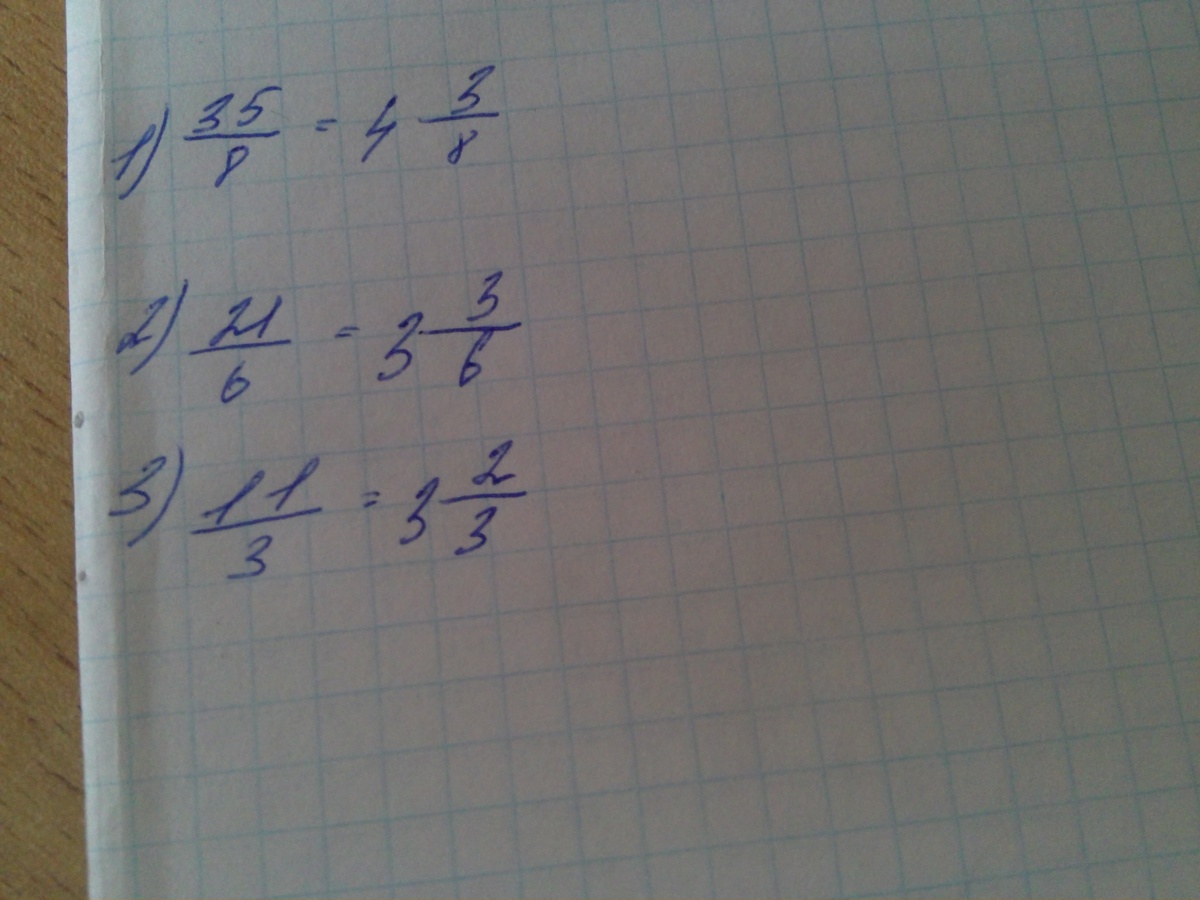 1) 35/8 = 4 3/8
2) 21/6 = 3 3/6
3) 11/3 = 3 2/3